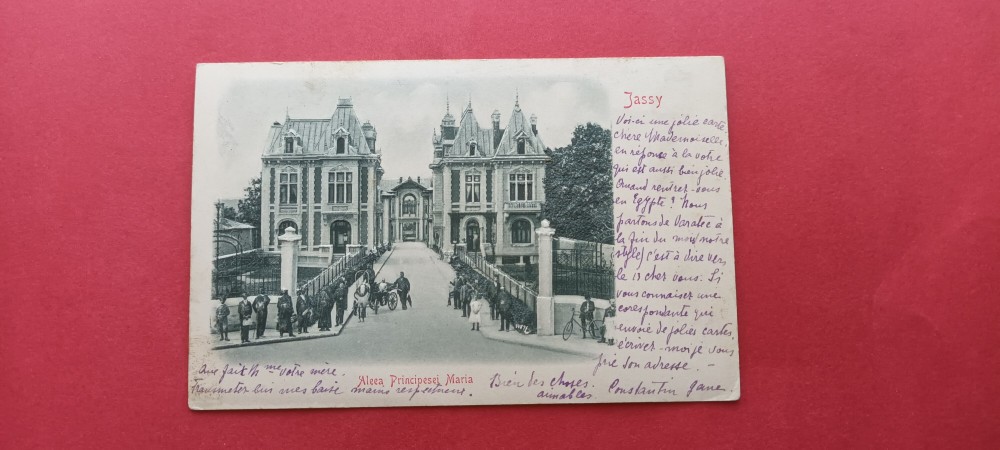 Jassy
Voi-ci une jolie carte,
chere Mademoiselle,
en réponse à la votre
qui est aussi bien jolie.
Quand rentrez-vous
en Egypte? Nous
partons de Varatec à
la fin du mois (notre
style) c'est à dire vers
le 13 chez vous. Si
vous connaissez une
corespondante qui
envoie de jolies cartes,
écrivez-moi je vous
prie son adresse. —
Que fait Mme votre mère.
Transmetez lui mes baise mains
Aleea Principesei Maria
Bien des choses
aimables.
Constantin